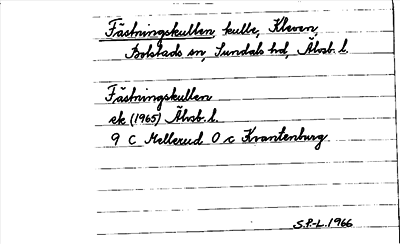 Fästningskullen, kulle, Kleven,
Bolstads sn, Sundals hd, Älvsb. l.
Fästningskullen
ek (1965) Älvsb. l.
9 C Mellerud 0 c Kvantenburg
S.P.-L. 1966